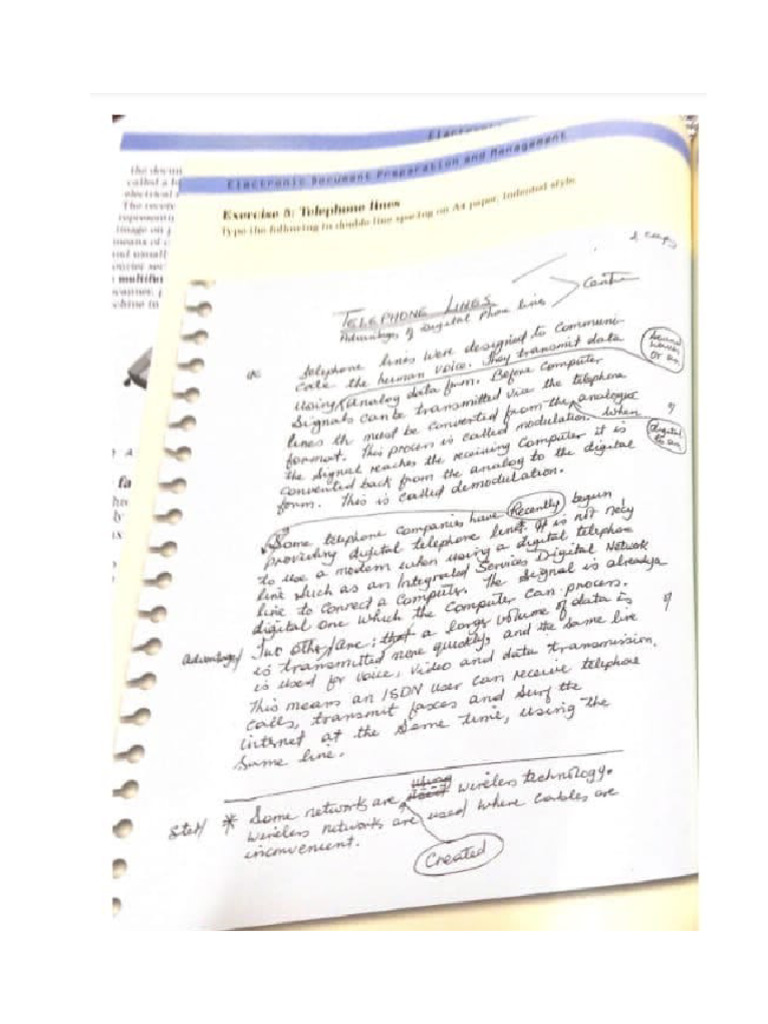 Electronic Document Preparation and Management
the docum
called a
electrical
The receiv
image on
means of
and usually
Exercise 5: Telephone lines
Type the following in double line spacing on A4 paper. Indented style.
TELEPHONE LINES
Advantages of Digital Phone line
Centre
Telephone lines were designed to communi-
cate the human voice. They transmit data
using analog data form. Before computer
signals can be transmitted via the telephone
lines th must be converted from the analogue
format. This process is called modulation. When
the signal reaches the receiving computer it is
converted back from the analog to the digital
form. This is called demodulation.
digital
to an
Some telephone companies have Recently begun
providing digital telephone lines. It is not necy
to use a modem when using a digital telephone
line which as an Integrated Services Digital Network
line to connect a computer. The signal is already a
digital one which the computer can process.
Advantages/ Two other are: that a large volume of data is
is transmitted more quickly, and the same line
is used for voice, video and data transmission.
This means an ISDN user can receive telephone
calls, transmit faxes and surf the
internet at the same time, using the
same line.
Stet/ * Some networks are using wireless technology.
wireless networks are used where cables are
inconvenient.
Created